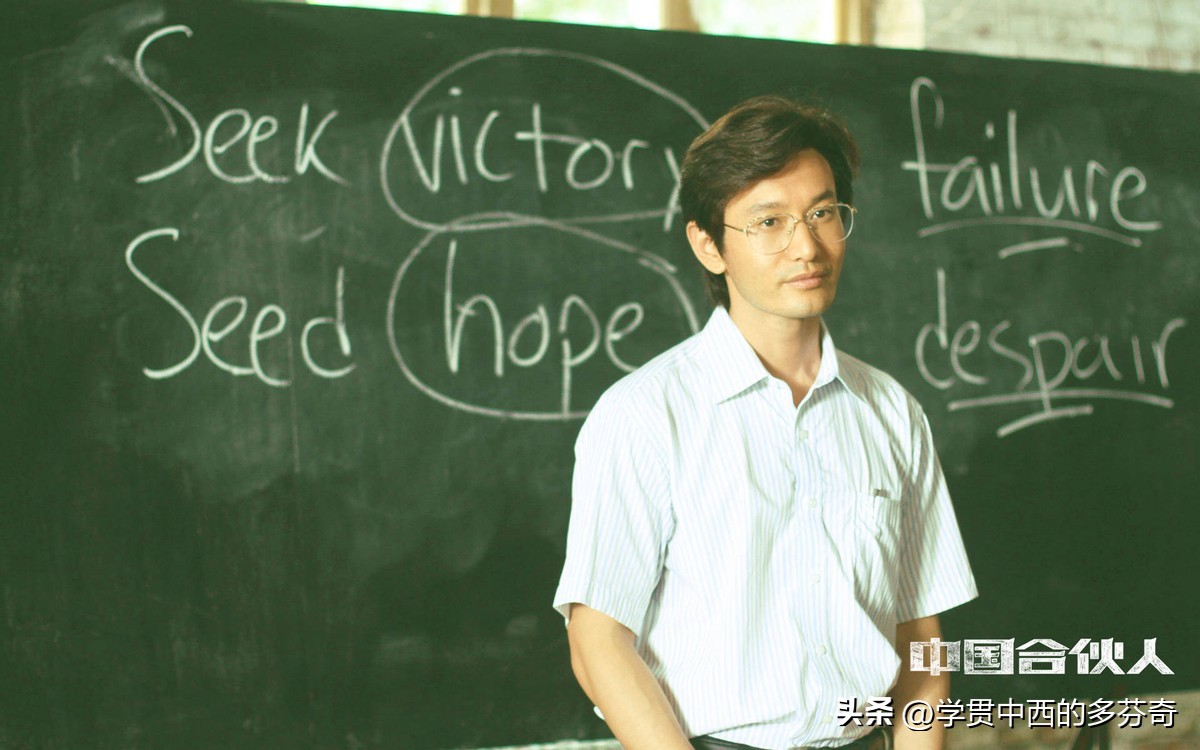 Seek victory failure
Seed hope despair
中国合伙人
头条 @学贯中西的多芬奇